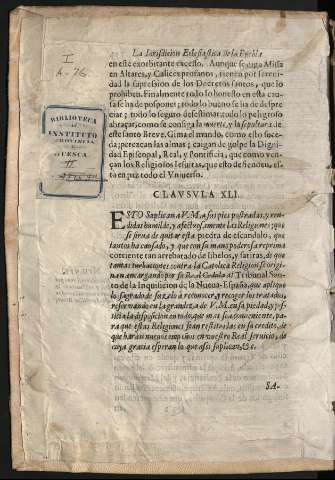 I
A-76
BIBLIOTECA
INSTITUTO
PROVINCIAL
HUESCA
La Iurisdicion Eclesiastica de la Puebla
en este exorbitante excesso. Aunque se diga Missa
en Altares, y Calices profanos, tienen por sereni-
dad la supresion de los Decretos santos, que lo
prohiben. Finalmente: todo lo honesto en esta cau-
sa se ha de posponer; todo lo bueno se ha de despre-
ciar; todo lo seguro desestimar: todo lo peligroso
abraçar; como se consiga la muerte, y la sepultura de
este santo Breve. Gima el mundo, como esto suce-
da; perezcan las almas; caigan de golpe la Dignidad
Episcopal, Real, y Pontificia, que como ven-
çan los Religiosos Iesuitas, que esto defienden, es-
tà en paz todo el Vniuerso.
CLAVSVLA XLI.
ESTO Suplican a V.M. a sus pies postradas, y ren-
didas humilde, y afectuosamente las Religiones; que
se sirua de quitar esta piedra de escandalo, que
tantos ha causado, y que con su mano poderosa reprima
corriente tan arrebatado de libelos, y satiras, de que
tantas turbaciones contra la Catolica Religion se origi-
nan encargando por su Real Cedula al Tribunal San-
to de la Inquisicion de la Nueua-España, que aplique
lo sagrado de su zelo a reconocer, y recoger los tratados,
reseruando en la grandeza de V.M. en su piedad, y jus-
ticia la disposicion en todo, que mas sea conueniente, pa-
ra que estas Religiones sean restituidas en su credito, de
que haràn nueuos empleos en vuestro Real seruicio, de
cuya gracia esperan lo que assi suplican, &c.
SA-